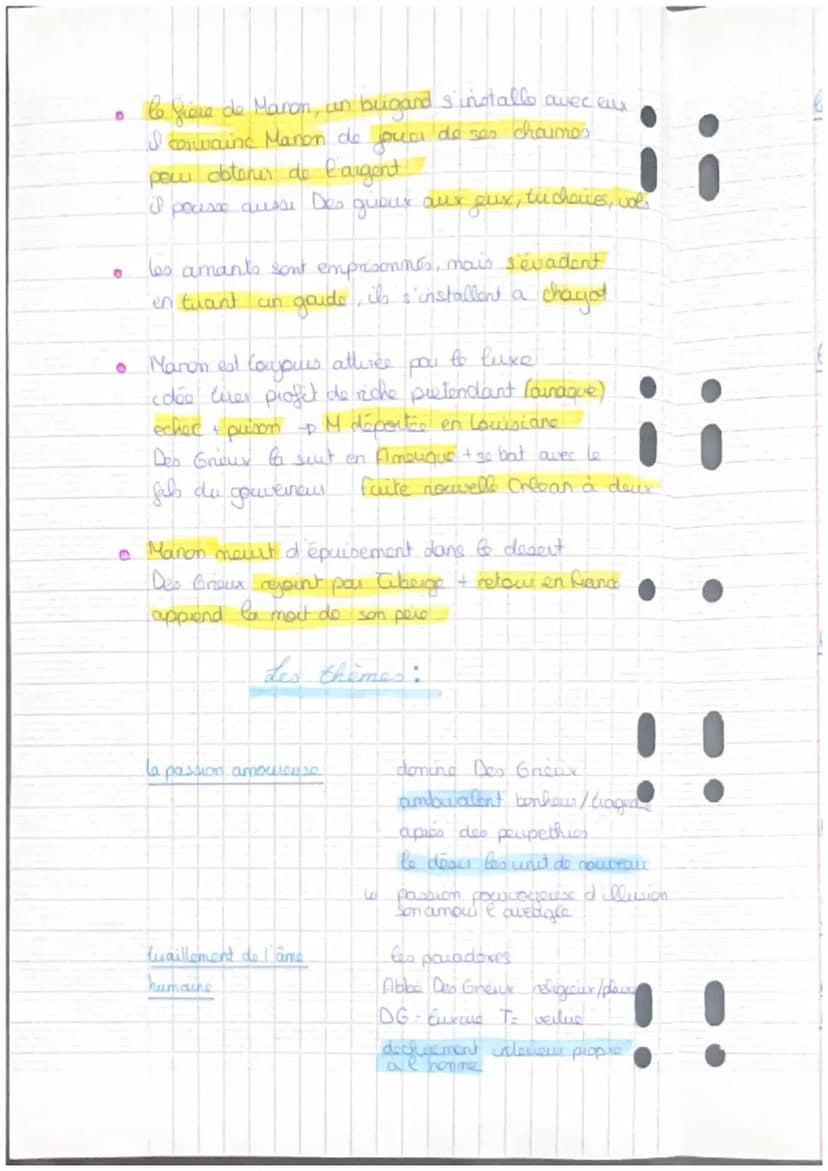 le frère de Manon, un brigand s'installe avec eux
il convainc Manon de jouer de ses charmes
pour obtenir de l'argent
il pousse aussi Des grieux aux jeux, tricheries, vols
les amants sont emprisonnés, mais s'évadent
en tuant un garde, ils s'installent a chayot
Manon est toujours attirée par le luxe
idée tirer profit de riche pretendant (arnaque)
echec + prison → M déportée en Louisiane
Des Grieux la suit en Amerique + se bat avec le
fils du gouverneur fuite nouvelle Orléan à deux
Manon meurt d'épuisement dans le desert
Des Grieux rejoint par Tiberge + retour en France
apprend la mort de son père
Les thèmes :
la passion amoureuse
domine Des Grieux
ambivalent bonheur/tragedie
après des
le désir les unit de nouveau
↳ passion d'illusion
son amour l'aveugle
tiraillement de l'âme
humaine
les paradoxes
Abbé Des Grieux religieux/
DG = luxure T = vertue
dechirement interieur propre
a l'homme